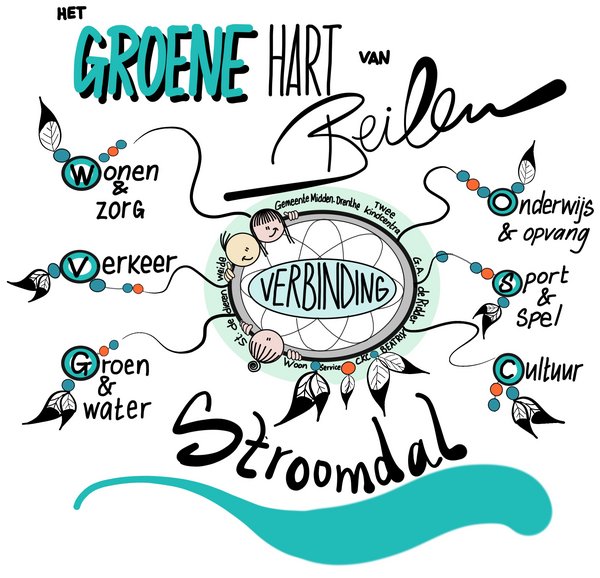 HET
GROENE HART VAN
Beilen
Wonen
&
zorg
Verkeer
Groen
&
water
Onderwijs
& opvang
Sport
&
Spel
Cultuur
Gemeente Midden-Drenthe
Twee
kindcentra
G.A. de Ridder
CKC BEATRIX
Woon Service
St. de Dieen weide
VERBINDING
Stroomdal